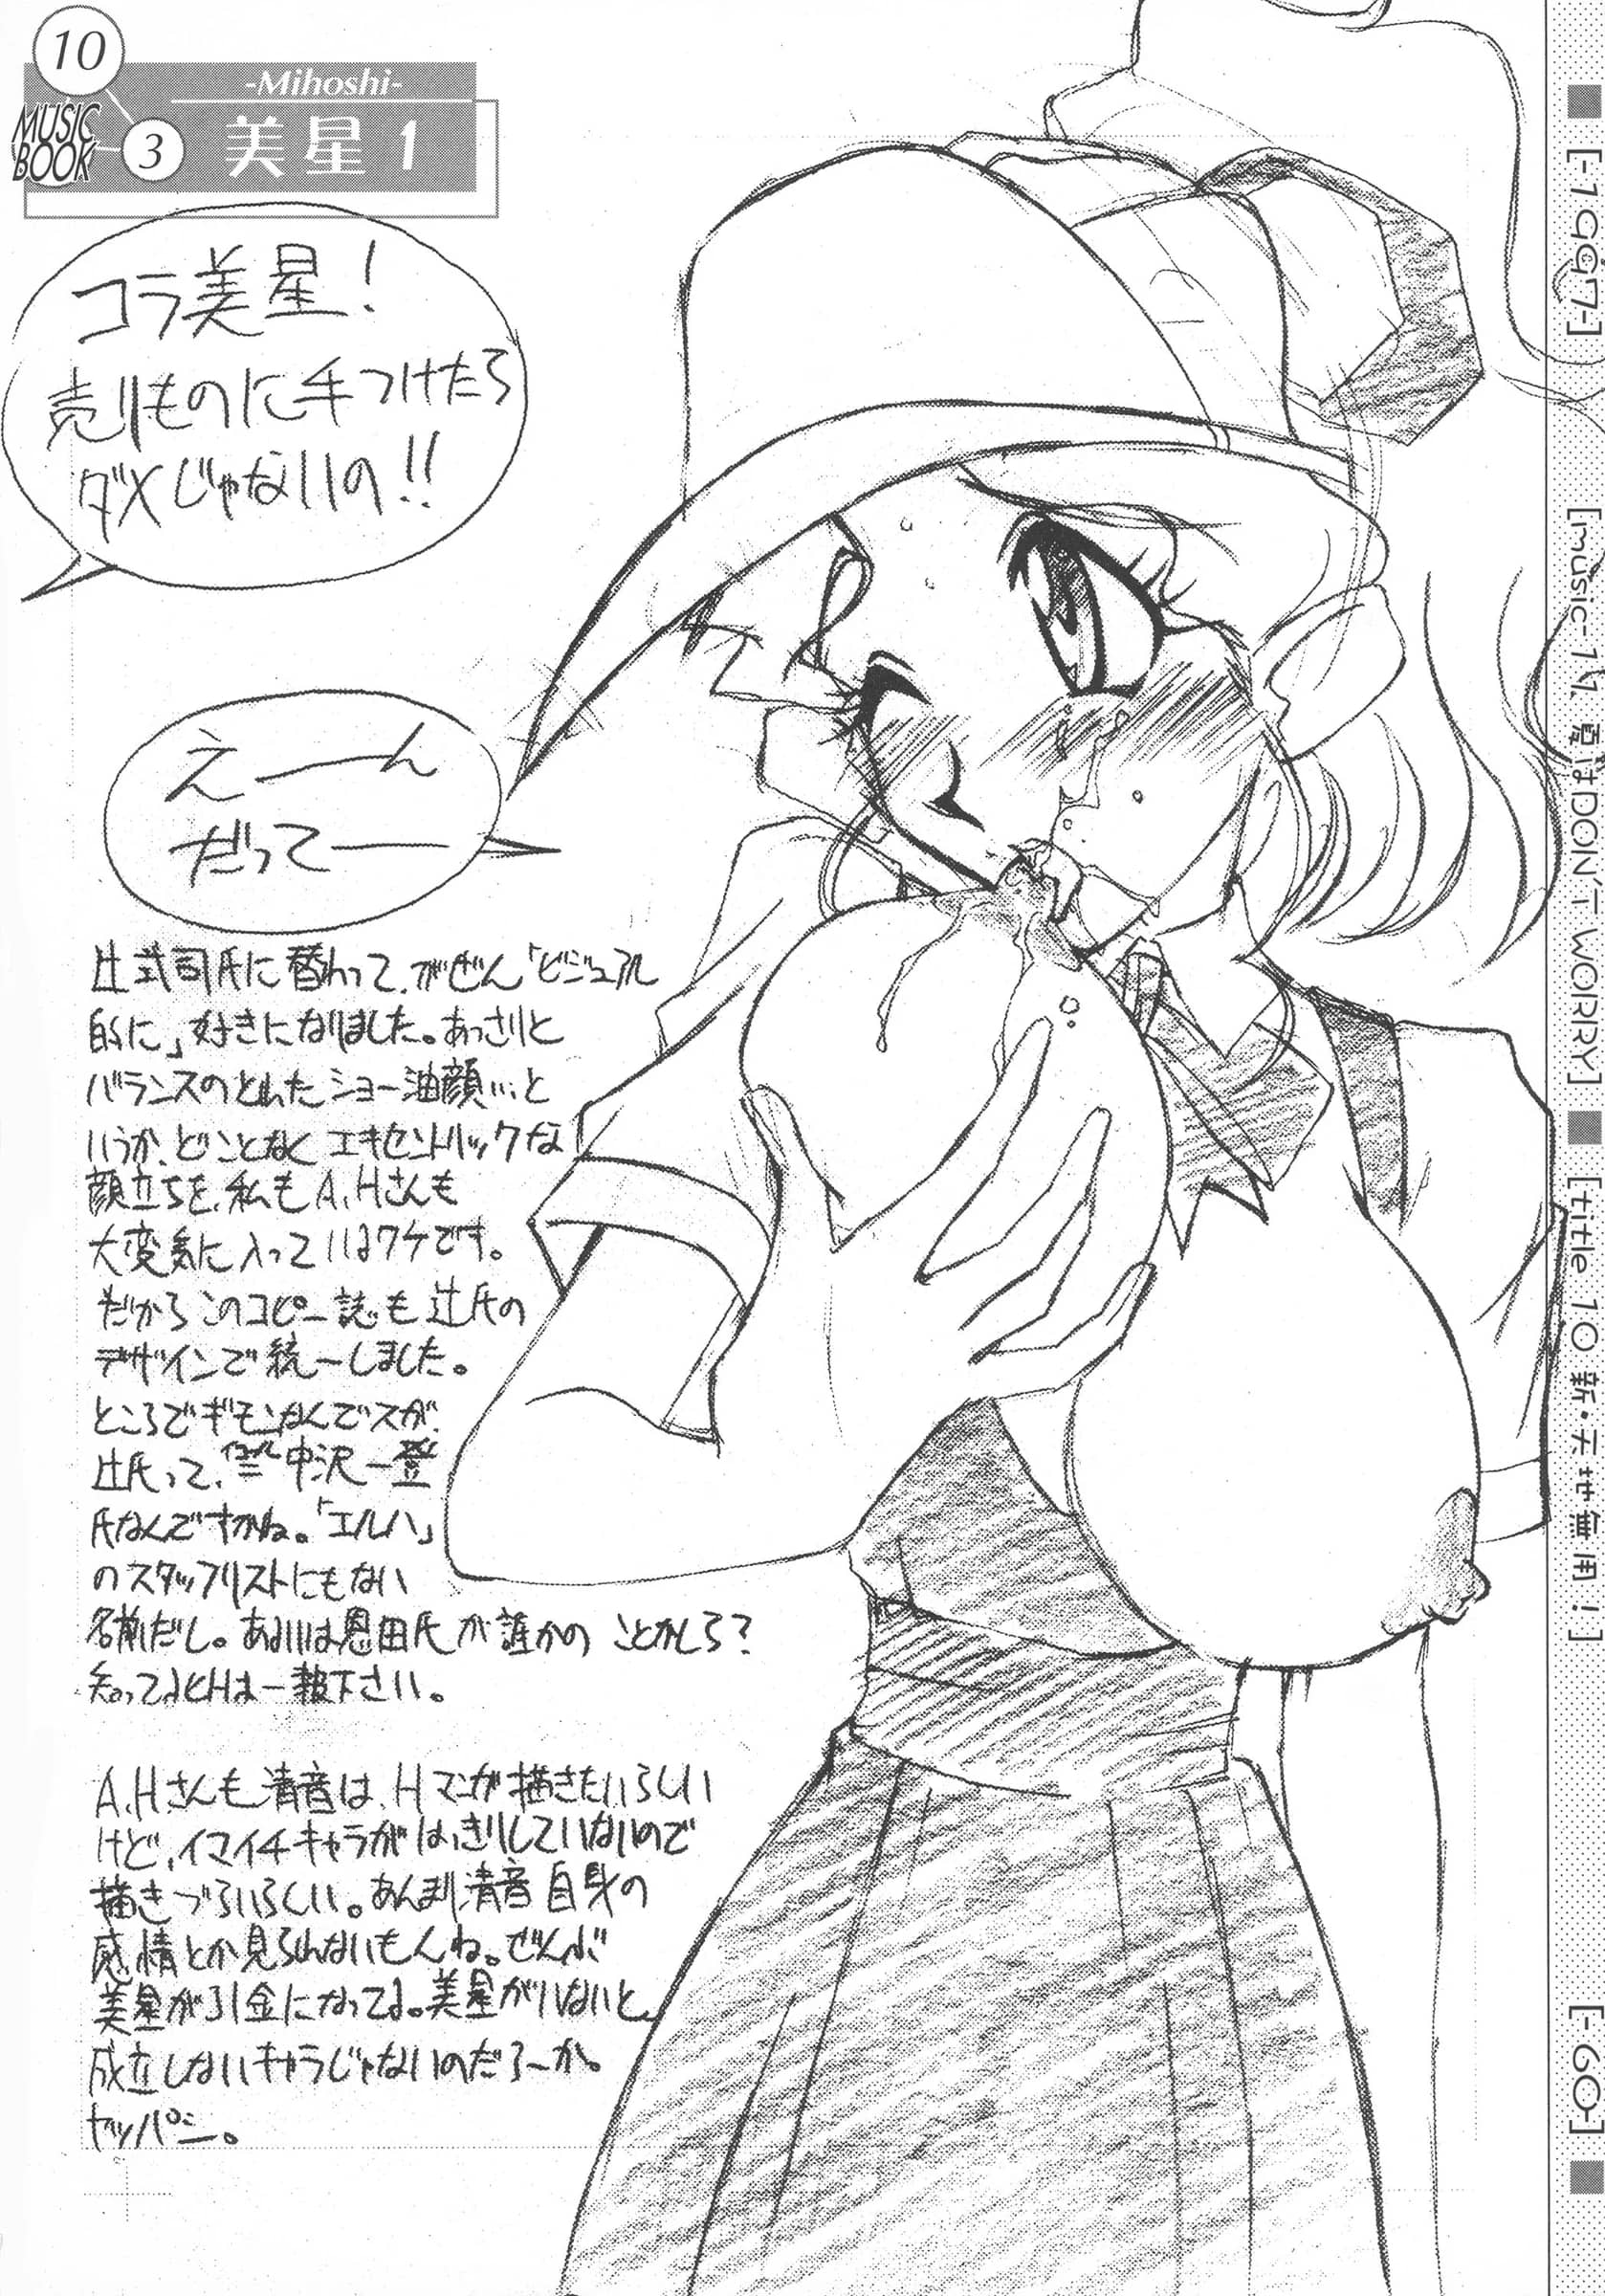 10
MUSIC BOOK
3
-Mihoshi-
美星 1
コラ美星!
売りものに手つけたら
ダメじゃないの!!
えーーん
だってーー
辻武司氏に替わって、がぜん「ビジュアル
的に」好きになりました。あっさりと
バランスのとれたショー油顔…と
いうか、どことなくエキセントリックな
顔立ちを、私もA.Hさんも
大変気に入っているワケです。
だからこのコピー誌も辻氏の
デザインで統一しました。
ところでギモンなんでスが、
辻氏って、イコール=中沢一登
氏なんですかね。「エルハ」
のスタッフリストにもない
名前だし。あるいは恩田氏か誰かの ことかしら?
知ってる人は一報下さい。
A.Hさんも清音は、Hマンガ描きたいらしい
けど、イマイチキャラがはっきりしていないので
描きづらいらしい。あんまり清音自身の
感情とか見られないもんね。ぜんぶ
美星が引金になってる。美星がいないと
成立しないキャラじゃないのだろーか。
ヤッパシ。
[-1997-]
[music-11 夏はDON'T WORRY]
[title 10 新・天地無用!]
[-60-]